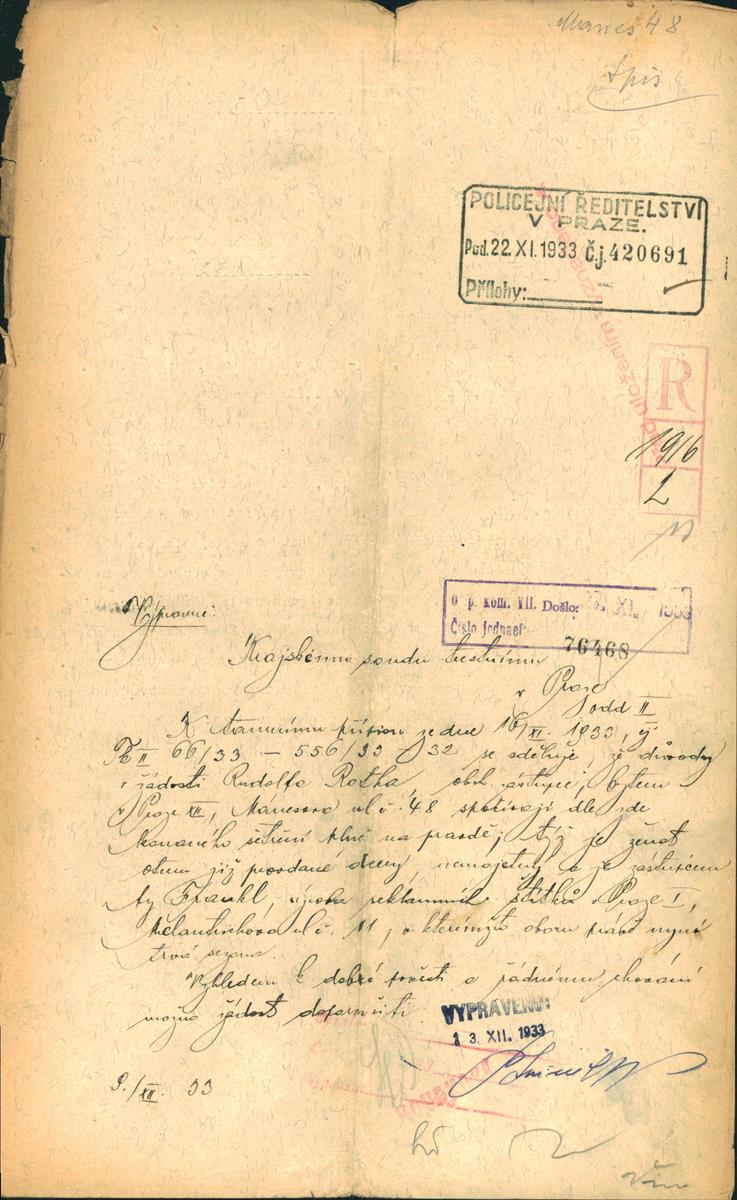 Manes 48
Spis
POLICEJNÍ ŘEDITELSTVÍ
V PRAZE.
Pod. 22. XI. 1933 Č.j. 420691
Přílohy:
R
1916
2
Výpravně:
o p. kom. VII. Došlo: XI. 1933
Číslo jednací
76468
Krajskému soudu trestnímu
v Praze
odd II
K tamnímu přípisu ze dne 16/XI. 1933, čj
Tk II 66/33 – 556/33 – 32 se sděluje, že důvody
žádosti Rudolfa Rotha, obch. zástupce, bytem
v Praze XII, Manesova ul č. 48 spočívají dle zde
konaného šetření plně na pravdě; týž je ženat
otcem již provdané dcery, nemajetný a je zástupcem
fy Frankl, výroba reklamních štítků v Praze I,
Melantrichova ul č. 11, v kterémžto oboru právě nyní
trvá sezona.
Vzhledem k dobré pověsti a řádnému chování
možno žádost doporučiti.
VYPRAVENO:
13. XII. 1933
9./XII. 33